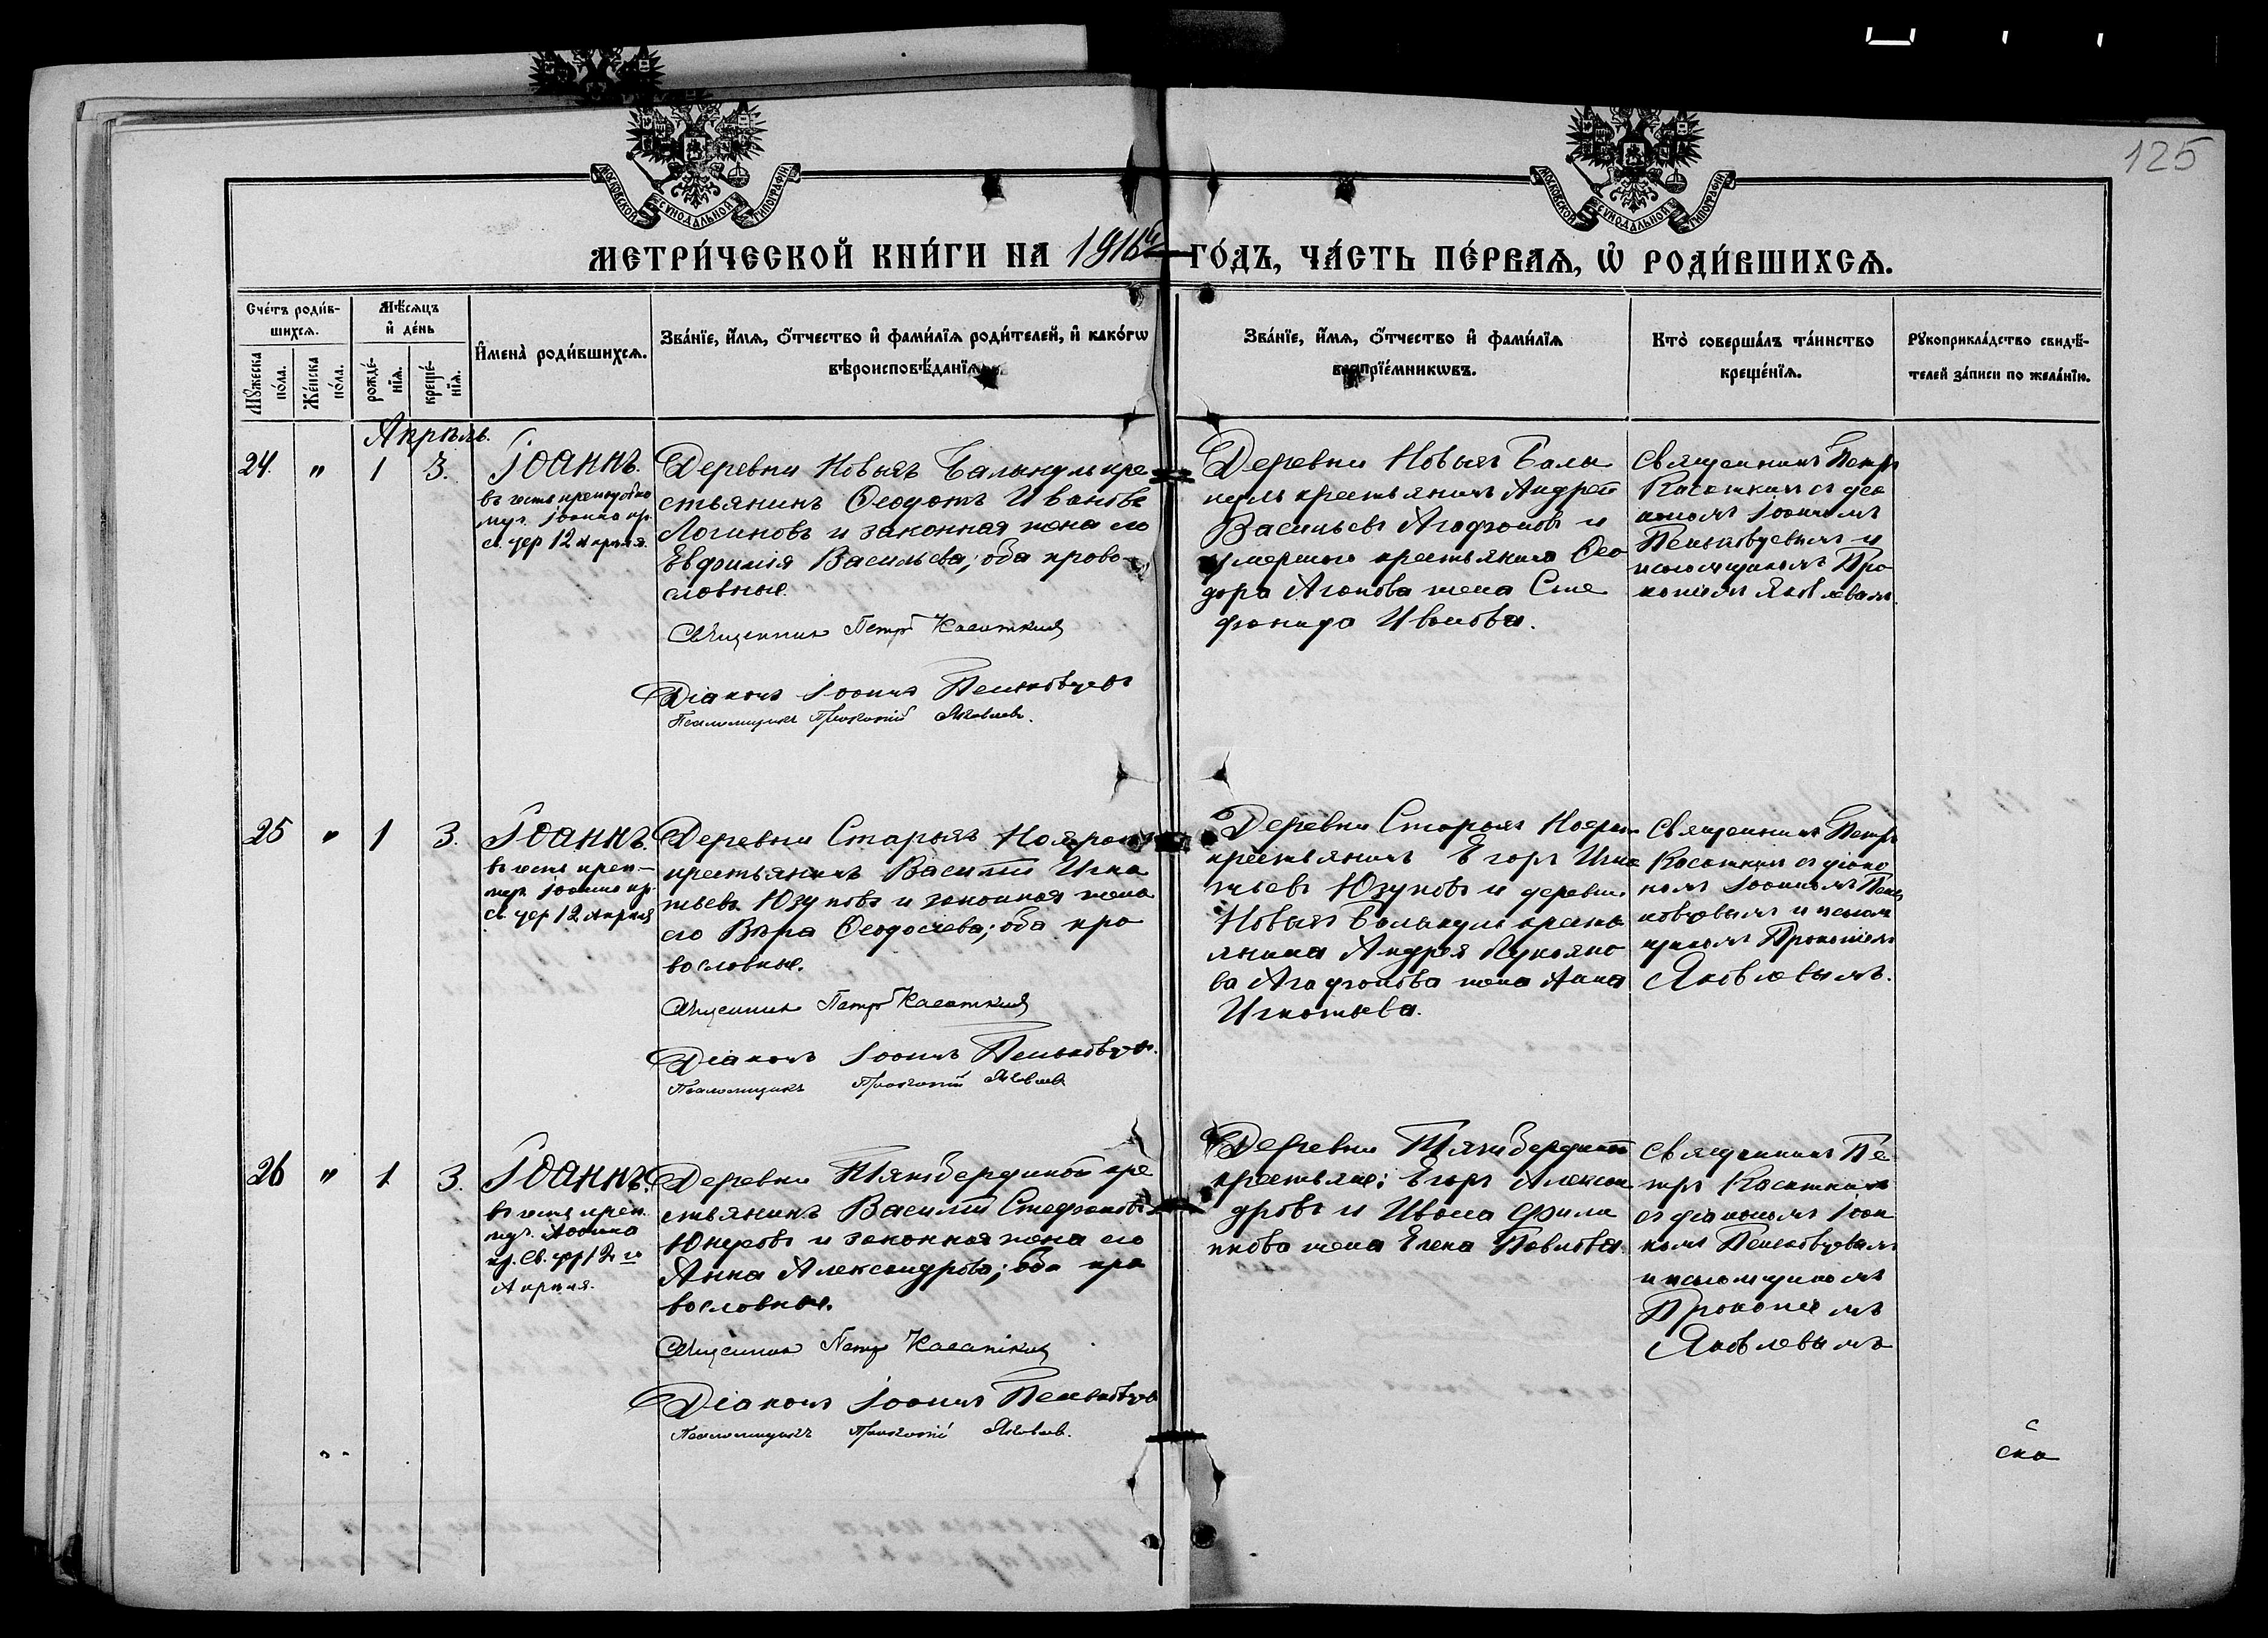 125
МОСКОВСКОЙ СѴНОДАЛЬНОЙ ТИПОГРАФІИ
МОСКОВСКОЙ СѴНОДАЛЬНОЙ ТИПОГРАФІИ
МЕТРИ́ЧЕСКОЙ КНИ́ГИ НА 1916й ГО́ДЪ, ЧА́СТЬ ПЕ́РВАѦ, Ѡ҆ РОДИ́ВШИХСѦ.
Сче́тъ роди́в-
шихсѧ.
Мꙋ́жеска по́ла.
Же́нска по́ла.
Мѣ́сѧцъ
и҆ де́нь
рожде́-
нїѧ.
креще́-
нїѧ.
И҆мена̀ роди́вшихсѧ.
Зва́нїе, и҆́мѧ, ѻ҆́тчество и҆ фами́лїѧ роди́телей, и҆ како́гѡ
вѣроисповѣ́данїѧ.
Зва́нїе, и҆́мѧ, ѻ҆́тчество и҆ фами́лїѧ
воспрїе́мникѡвъ.
Кто̀ соверша́лъ та́инство
креще́нїѧ.
Рꙋкоприкла́дство свидѣ́-
телей за́писи по жела́нїю.
Апрѣль.
24. " 1 3.
Іоаннъ.
въ честь преподобно
муч. Іоанна пр.
св. цер 12 апрѣля.
Деревни Новыхъ Балыкуль кре
стьянинъ Ѳеодотъ Ивановъ
Логиновъ и законная жена его
Евфимія Васильева; оба право-
славные.
Священникъ Петръ Касаткинъ
Діаконъ Іоаннъ Пеньковцевъ
Псаломщикъ Прокопій Яковлевъ.
Деревни Новыхъ Балы
куль крестьянинъ Андрей
Васильевъ Агафоновъ и
умершаго крестьянина Ѳео
дора Агапова жена Сте
фанида Иванова.
Священникъ Петръ
Касаткинъ съ діа
кономъ Іоанномъ
Пеньковцевымъ и
псаломщикомъ Про
копіемъ Яковлевымъ.
25 " 1 3.
Іоаннъ.
въ честь преп-
муч. Іоанна пр.
св. цер 12 Апрѣля
Деревни Старыхъ
крестьянинъ Василій Игна
тьевъ Юзуковъ и законная жена
его Вѣра Ѳеодосіева; оба пра
вославные.
Священникъ Петръ Касаткинъ
Діаконъ Іоаннъ Пеньковцевъ.
Псаломщикъ Прокопій Яковлевъ
Деревни Старыхъ
крестьянинъ Егоръ Игна
тьевъ Юзуковъ и деревни
Новыхъ Балыкуль кресть
янина Андрея Лукьяно
ва Агафонова жена Анна
Игнатьева.
Священникъ Петръ
Касаткинъ съ діако
номъ Іоанномъ Пень
ковцевымъ и псалом
щикомъ Прокопіемъ
Яковлевымъ.
26 " 1 3.
Іоаннъ.
въ честь преп.
муч. Іоанна
пр. св. цер 12 го
Апрѣля.
Деревни Тямбердиной кре
стьянинъ Василій Стефановъ
и законная жена его
Анна Александрова; оба пра
вославные.
Священникъ Петръ Касаткинъ
Діаконъ Іоаннъ Пеньковцевъ
Псаломщикъ Прокопій Яковлевъ.
Деревни Тямбердиной
крестьяне: Егоръ Алексан
дровъ и Ивана Фили
пова жена Елена Павлова.
Священникъ Пе
тръ Касаткинъ
съ діакономъ Іоан
номъ Пеньковцевымъ
и псаломщикомъ
Прокопіемъ
Яковлевымъ